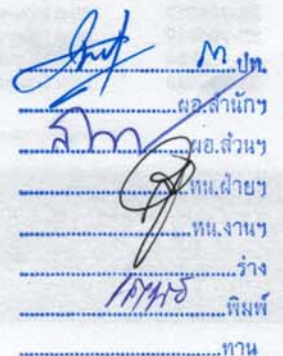 ปท.
ผอ.สำนักฯ
ผอ.ส่วนฯ
หน.ฝ่ายฯ
หน.งานฯ
ร่าง
พิมพ์
ทาน